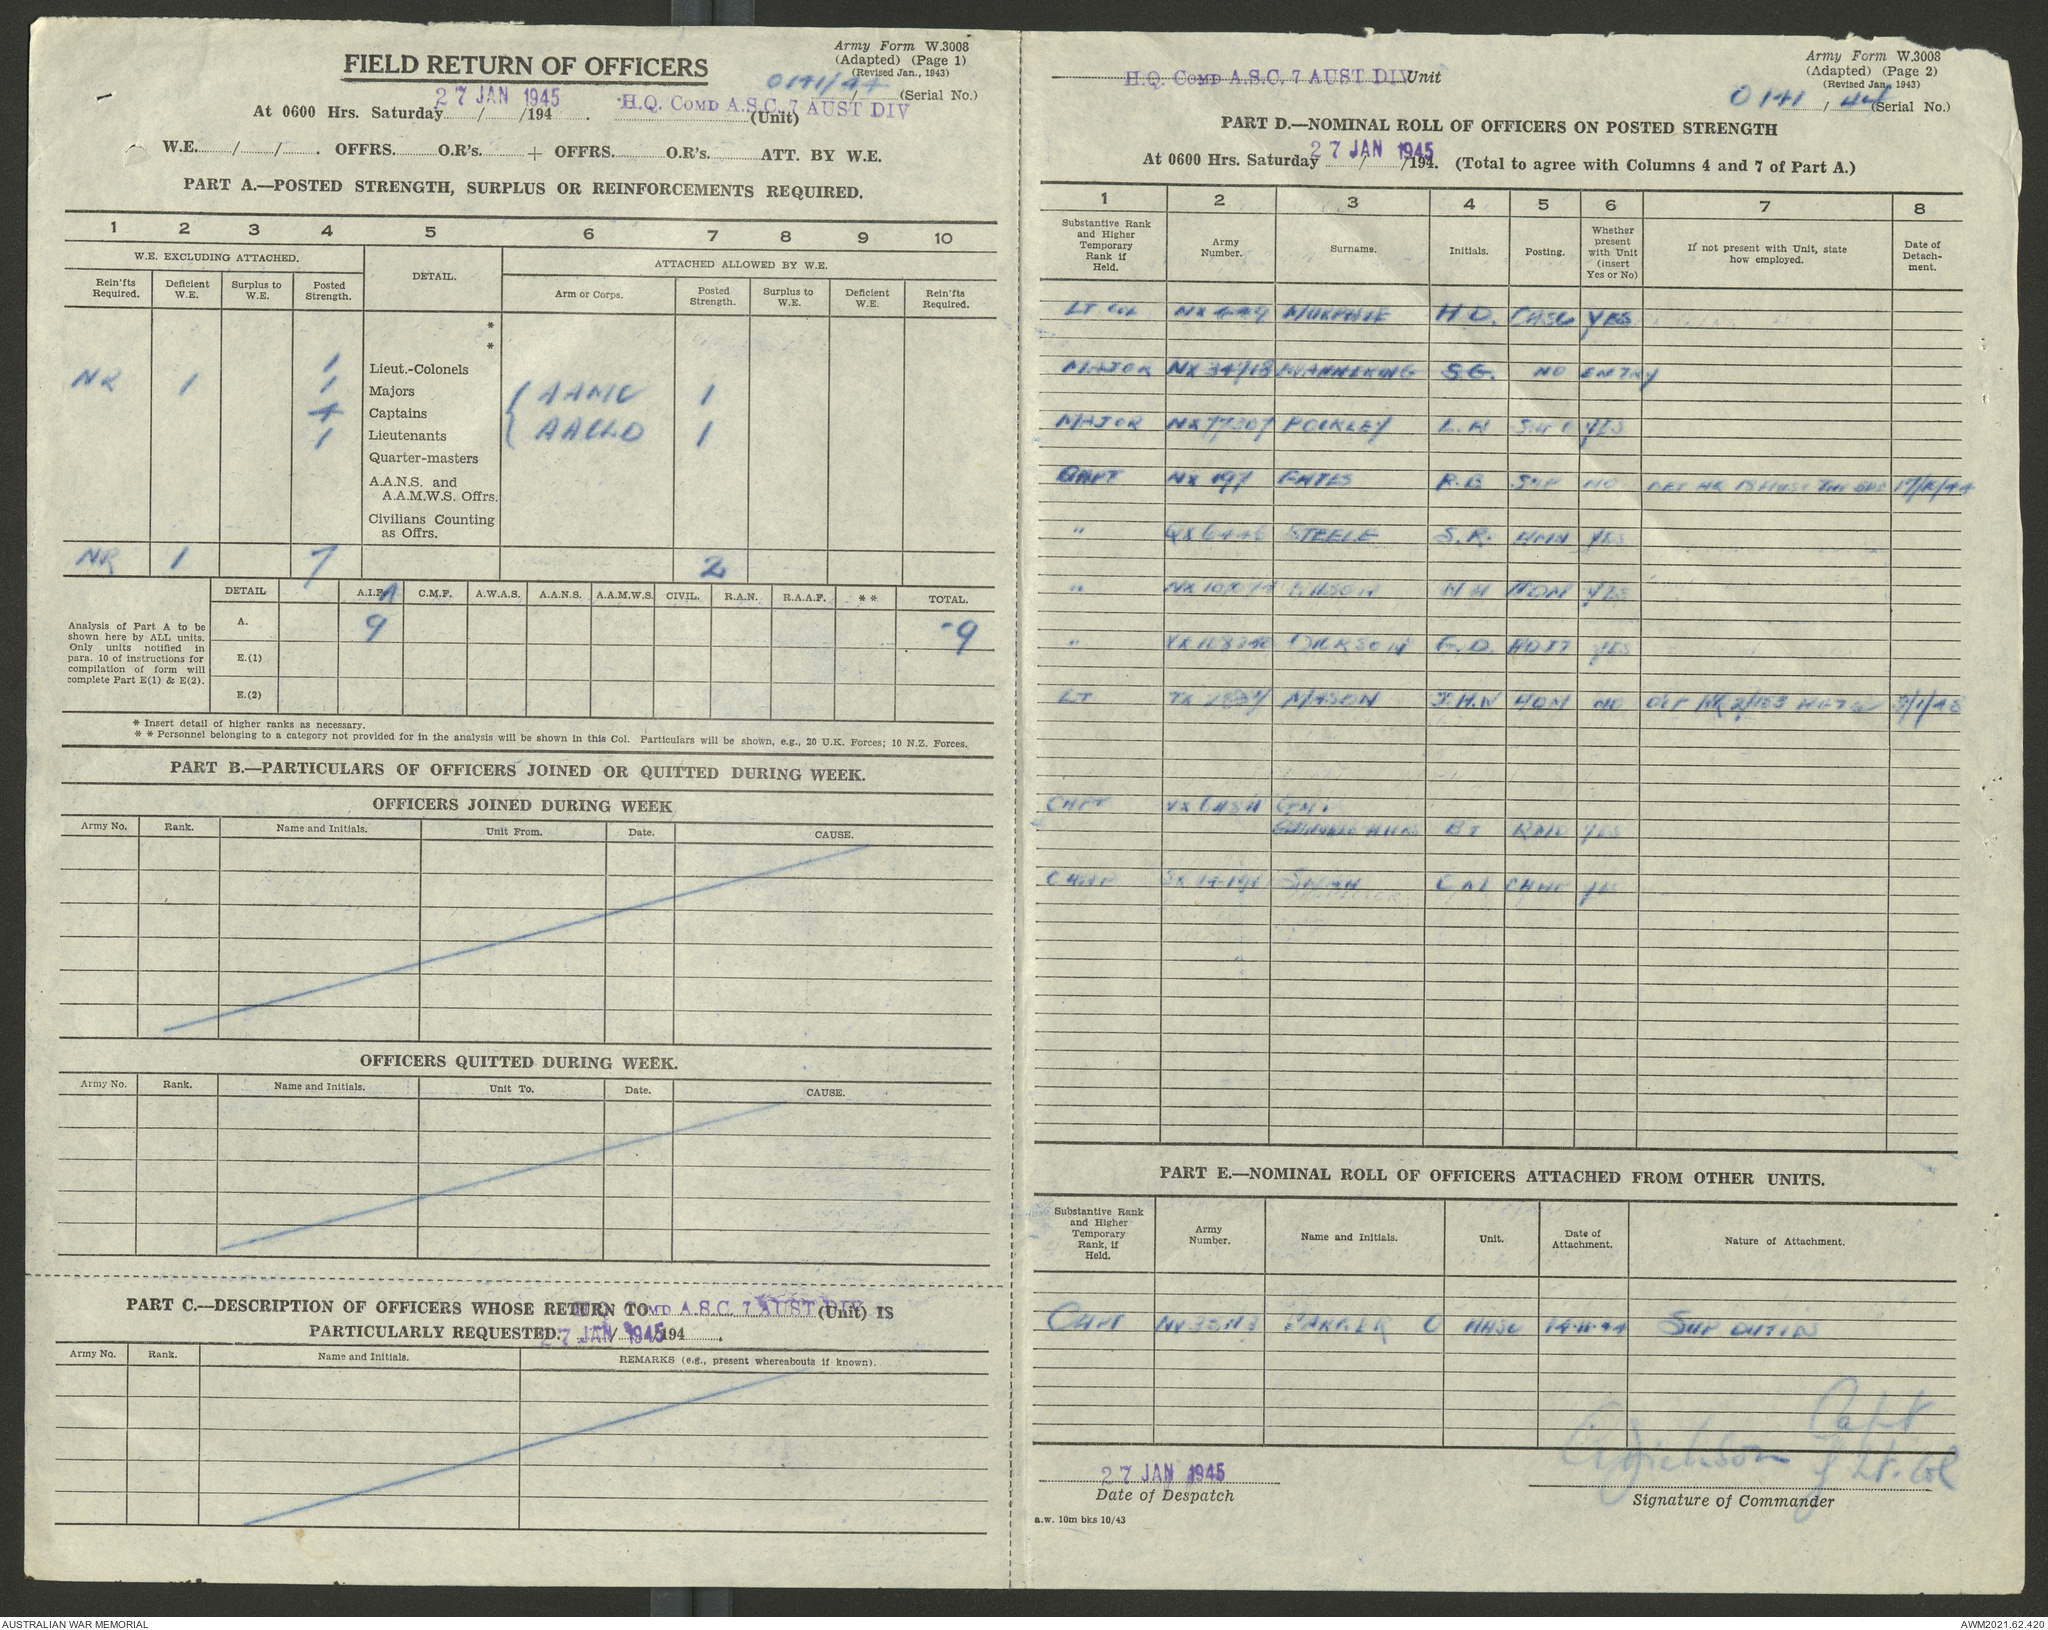 Army Form W.3008
(Adapted) (Page 1)
(Revised Jan., 1943)
FIELD RETURN OF OFFICERS
0141/44 (Serial No.)
At 0600 Hrs. Saturday 27 JAN 1945 /194 . H.Q. COMD A.S.C. 7 AUST DIV (Unit)
W.E. / / . OFFRS. O.R's. + OFFRS. O.R's. ATT. BY W.E.
PART A.—POSTED STRENGTH, SURPLUS OR REINFORCEMENTS REQUIRED.
1 2 3 4 5 6 7 8 9 10
W.E. EXCLUDING ATTACHED. DETAIL. ATTACHED ALLOWED BY W.E.
Rein'fts Required. Deficient W.E. Surplus to W.E. Posted Strength. Arm or Corps. Posted Strength. Surplus to W.E. Deficient W.E. Rein'fts Required.
*
*
1 Lieut.-Colonels
NR 1 1 Majors AAMC 1
4 Captains
1 Lieutenants 1
Quarter-masters
A.A.N.S. and
A.A.M.W.S. Offrs.
Civilians Counting
as Offrs.
NR 1 7 2
DETAIL A.I.F. C.M.F. A.W.A.S. A.A.N.S. A.A.M.W.S. CIVIL. R.A.N. R.A.A.F. * * TOTAL.
Analysis of Part A to be
shown here by ALL units.
Only units notified in
para. 10 of instructions for
compilation of form will
complete Part E(1) & E(2).
A. 9 9
E.(1)
E.(2)
* Insert detail of higher ranks as necessary.
* * Personnel belonging to a category not provided for in the analysis will be shown in this Col. Particulars will be shown, e.g., 20 U.K. Forces; 10 N.Z. Forces.
PART B.—PARTICULARS OF OFFICERS JOINED OR QUITTED DURING WEEK.
OFFICERS JOINED DURING WEEK
Army No. Rank. Name and Initials. Unit From. Date. CAUSE.
OFFICERS QUITTED DURING WEEK.
Army No. Rank. Name and Initials. Unit To. Date. CAUSE.
PART C.—DESCRIPTION OF OFFICERS WHOSE RETURN TO H.Q. COMD A.S.C. 7 AUST DIV (Unit) IS
PARTICULARLY REQUESTED. 27 JAN 1945 /194 .
Army No. Rank. Name and Initials. REMARKS (e.g., present whereabouts if known).
Army Form W.3008
(Adapted) (Page 2)
(Revised Jan., 1943)
H.Q. COMD A.S.C. 7 AUST DIV Unit
0141 / 44 (Serial No.)
PART D.—NOMINAL ROLL OF OFFICERS ON POSTED STRENGTH
At 0600 Hrs. Saturday 27 JAN 1945 /194. (Total to agree with Columns 4 and 7 of Part A.)
1 2 3 4 5 6 7 8
Substantive Rank and Higher Temporary Rank if Held. Army Number. Surname. Initials. Posting. Whether present with Unit (insert Yes or No) If not present with Unit, state how employed. Date of Detachment.
LT COL H.D. YES
MAJOR S.G. NO ENTRY
MAJOR NX77307 POCKLEY YES
CAPT NX 197 R.B NO
" QX6446 STEELE S.R. YES
" YES
" G.D. YES
LT MASON J.H.W NO 3/1/45
CAPT
YES
CHAP SWAN CHAP YES
PART E.—NOMINAL ROLL OF OFFICERS ATTACHED FROM OTHER UNITS.
Substantive Rank and Higher Temporary Rank, if Held. Army Number. Name and Initials. Unit. Date of Attachment. Nature of Attachment.
CAPT 14-11-44
Capt
f Lt. Col
27 JAN 1945
Date of Despatch
Signature of Commander
a.w. 10m bks 10/43
AUSTRALIAN WAR MEMORIAL
AWM2021.62.420